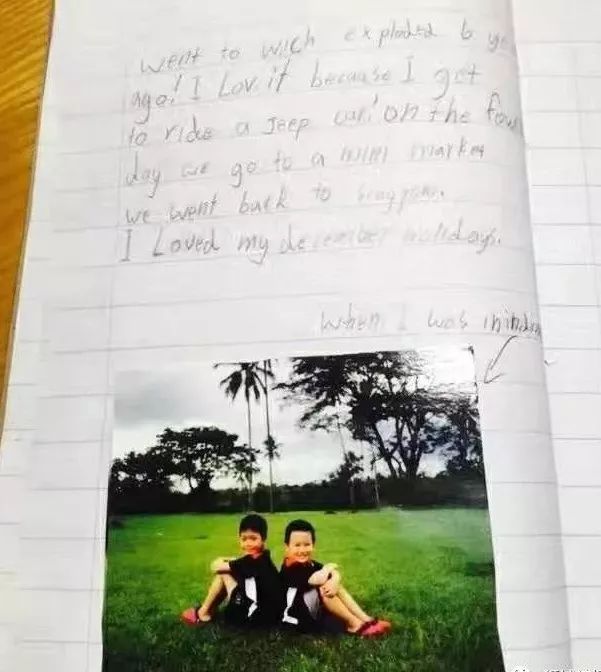 went to wich exploded 6 ye
ago! I Lov it because I get
to ride a Jeep car! on the fou
day we go to a mini market
we went back to
I Loved my december holidays.
when I was in indo